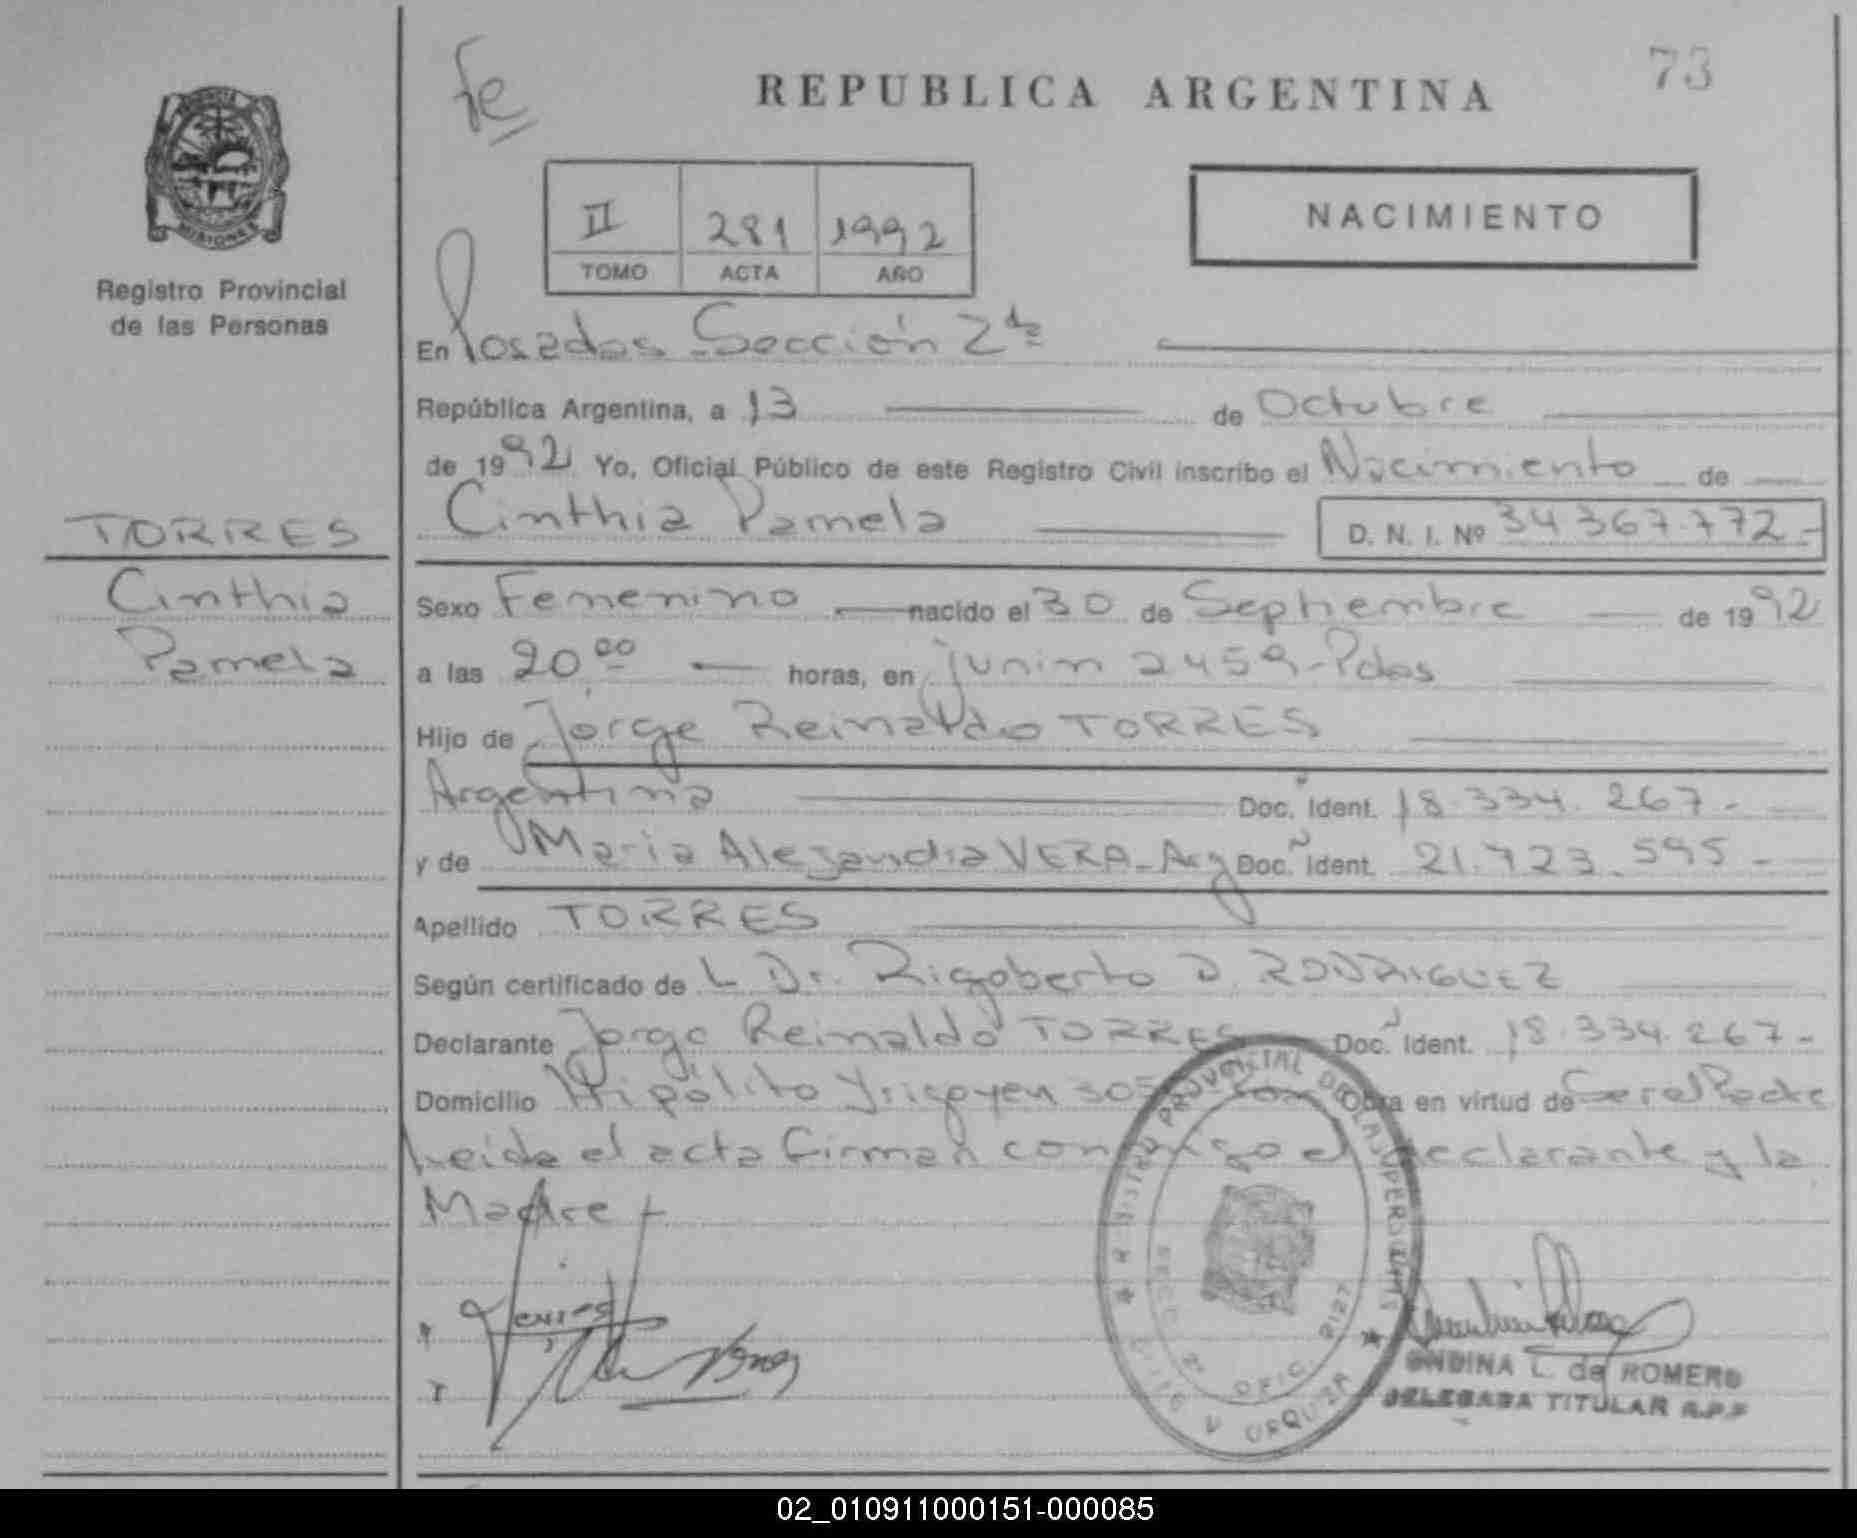 Fe
REPUBLICA ARGENTINA
73
PROVINCIA
MISIONES
Registro Provincial
de las Personas
II 281 1992
TOMO ACTA AÑO
NACIMIENTO
En Posadas Sección 2da
República Argentina, a 13 de Octubre
de 1992 Yo, Oficial Público de este Registro Civil inscribo el Nacimiento de
Cinthia Pamela
D. N. I. Nº 34 367.772.-
TORRES
Cinthia
Pamela
Sexo Femenino nacido el 30 de Septiembre de 1992
a las 20 00 horas, en junin 2459-Pdas
Hijo de Jorge Reinaldo TORRES
Argentina Doc. Ident. 18.334.267.-
y de Maria Alejandra VERA-Arg Doc. Ident. 21.723.595-
Apellido TORRES
Según certificado de L Dr. Rigoberto D. RODRIGUEZ
Declarante Jorge Reinaldo TORRES Doc. Ident. 18.334.267-
Domicilio Hipólito Yrigoyen Obra en virtud de
Leida el acta firman conmigo el declarante y la
Madre
REGISTRO PROVINCIAL DE LAS PERSONAS
SECC 2 OFIC. 2127
URQUIZA
ONDINA L. de ROMERO
DELEGADA TITULAR R.P.P
02_010911000151-000085